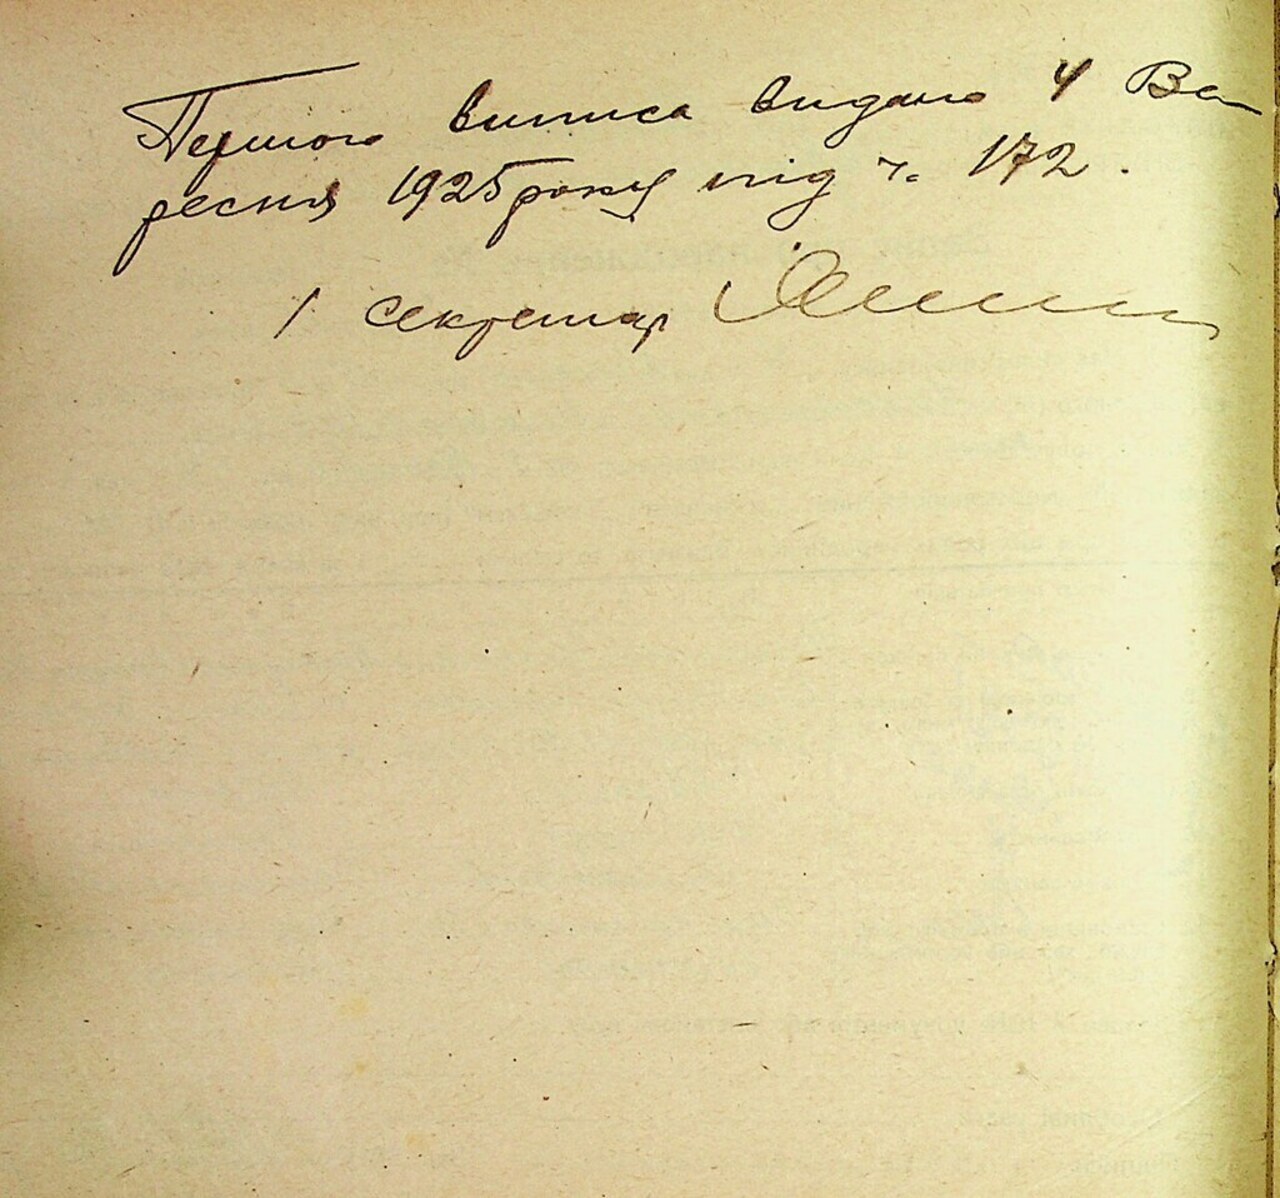 Першого виписа видано 4 Ве-
ресня 1925 року під ч. 172.
/ Секретар